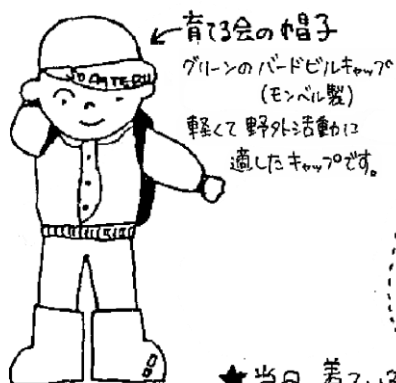 育てる会の帽子
グリーンのバードビルキャップ
(モンベル製)
軽くて野外活動に
適したキャップです。
★当日、着ている